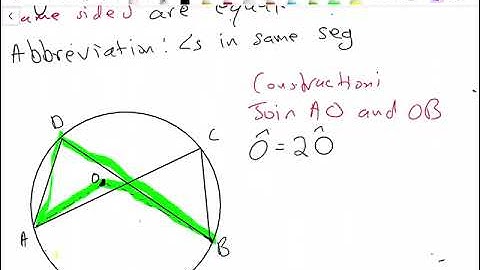 same sides are equal
Abbreviation: ∠s in same seg
Construction:
Join AO and OB
Ô = 2Ô
D
C
O
A
B